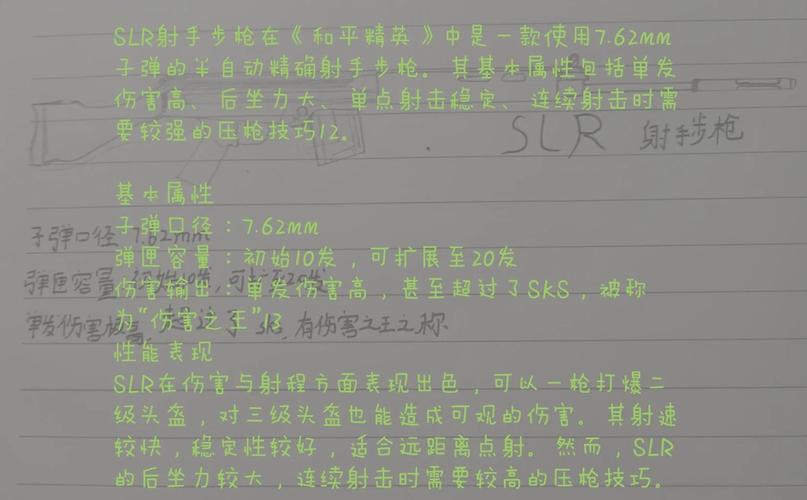 SLR射手步枪在《和平精英》中是一款使用7.62mm
子弹的半自动精确射手步枪。其基本属性包括单发
伤害高、后坐力大、单点射击稳定、连续射击时需
要较强的压枪技巧12。
SLR 射手步枪
基本属性
子弹口径：7.62mm
子弹口径 7.62mm
弹匣容量：初始10发，可扩展至20发
弹匣容量 初始10发，可扩至20发
伤害输出：单发伤害高，甚至超过了SKS，被称
为“伤害之王”13
单发伤害极高，超过了 SKS，有伤害之王之称
性能表现
SLR在伤害与射程方面表现出色，可以一枪打爆二
级头盔，对三级头盔也能造成可观的伤害。其射速
较快，稳定性较好，适合远距离点射。然而，SLR
的后坐力较大，连续射击时需要较高的压枪技巧。